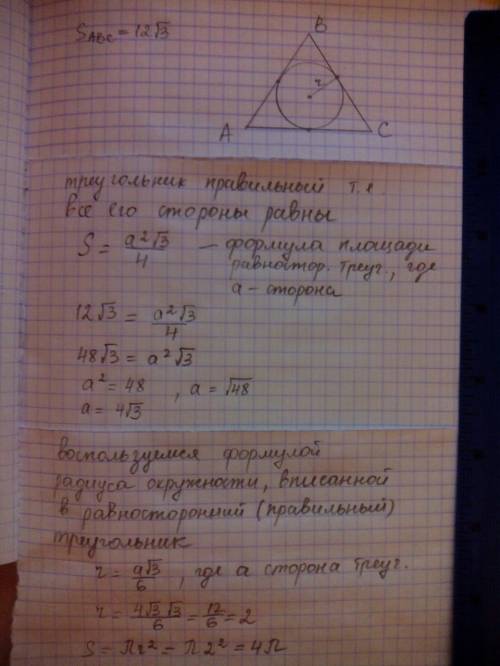 S_ABC = 12√3
B
r
A
C
треугольник правильный т.е.
все его стороны равны
S = a²√3/4 — формула площади
равностор. треуг., где
a - сторона
12√3 = a²√3/4
48√3 = a²√3
a² = 48 , a = √48
a = 4√3
воспользуемся формулой
радиуса окружности, вписанной
в равносторонний (правильный)
треугольник
r = a√3/6 , где a сторона треуг.
r = 4√3√3/6 = 12/6 = 2
S = Пr² = П2² = 4П